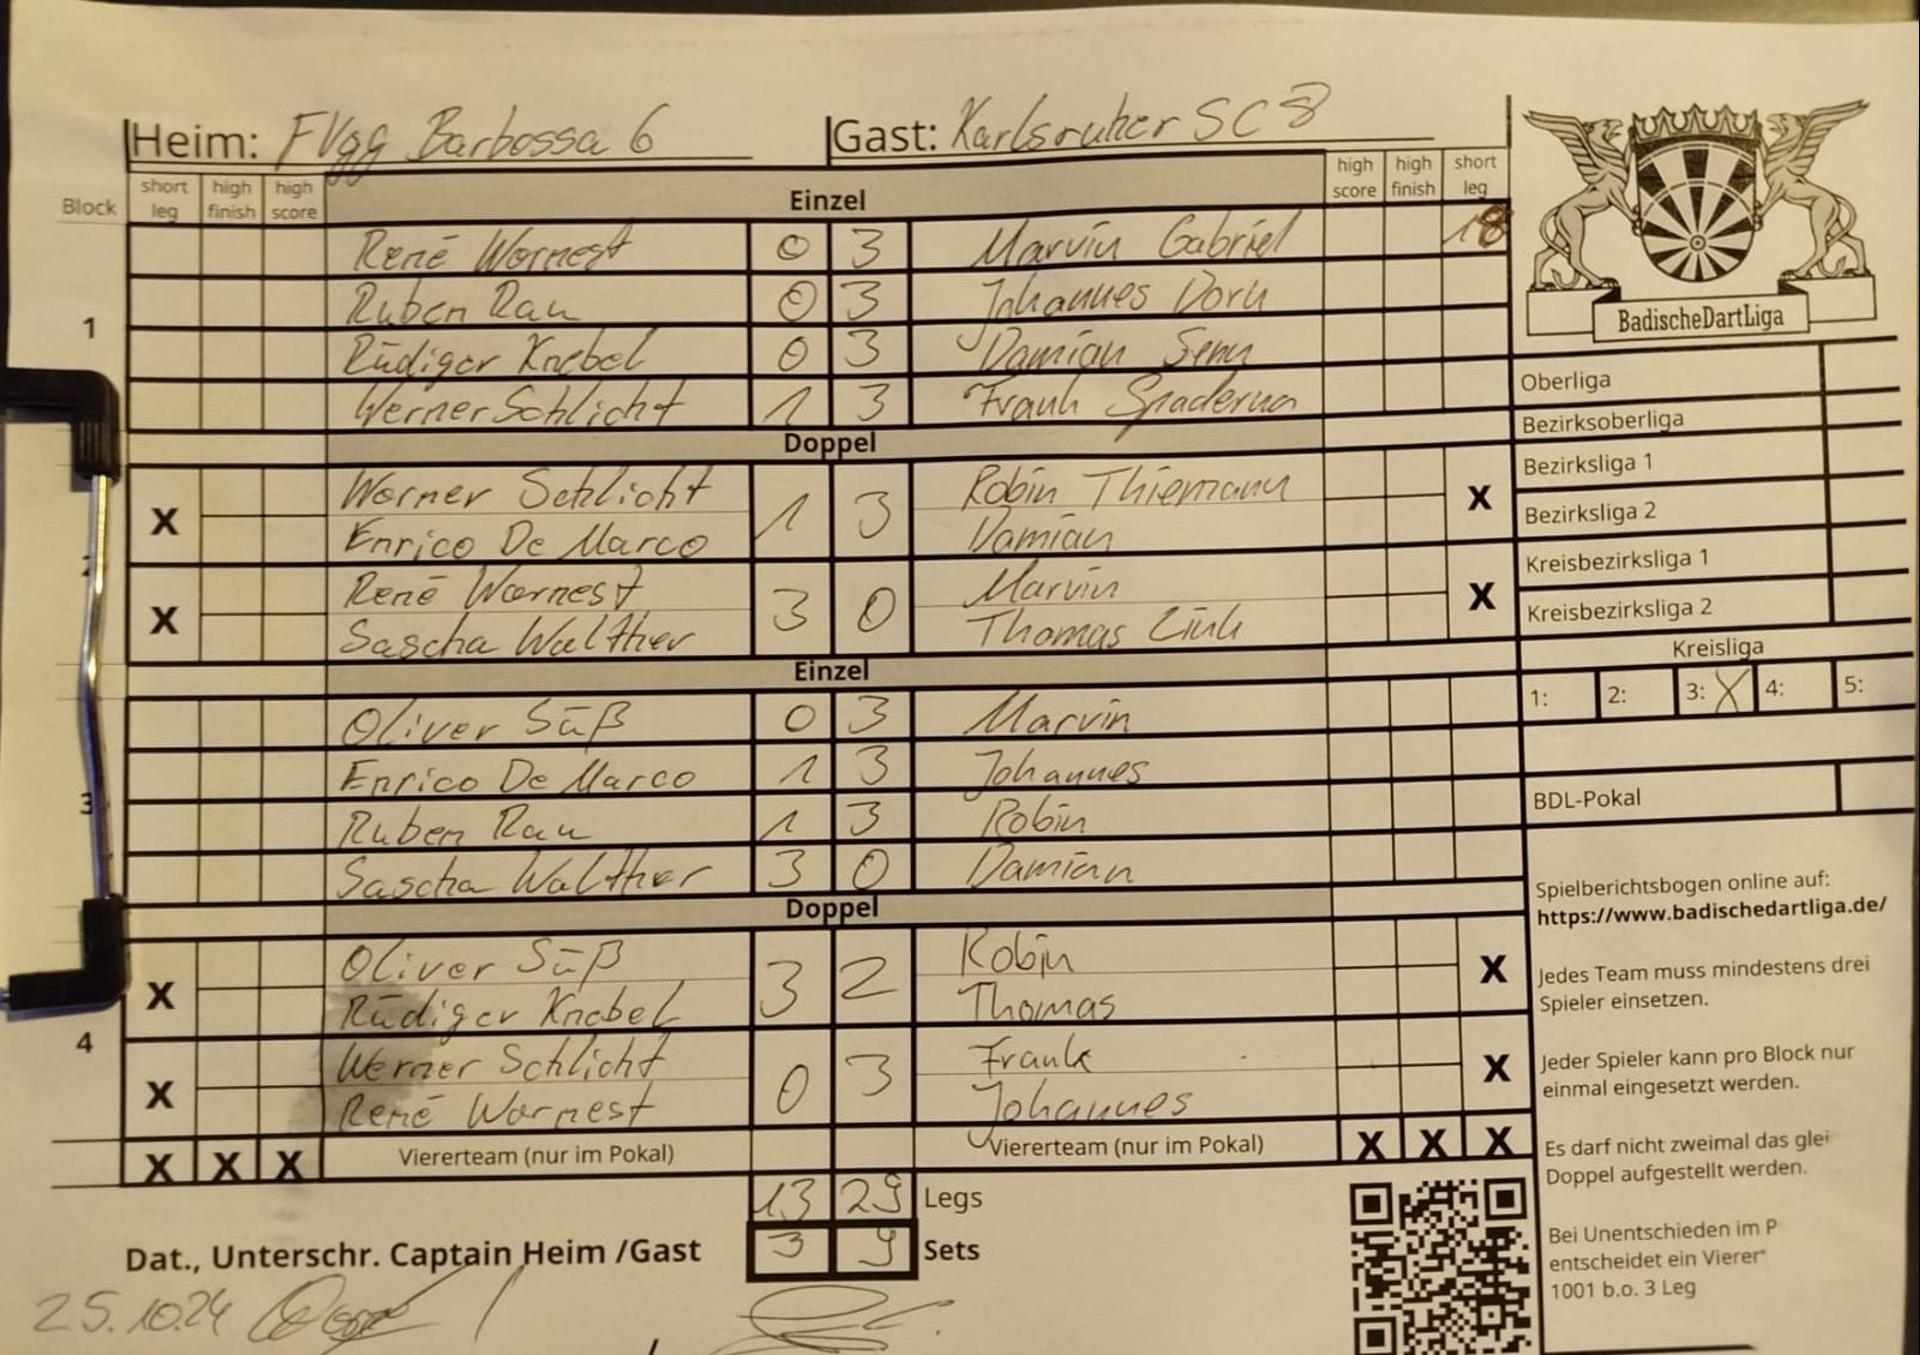 Heim: FVgg Barbossa 6 Gast: Karlsruher SC 8
Block short leg high finish high score Einzel high score high finish short leg
René Wornest 0 3 Marvin Gabriel 18
Ruben Rau 0 3 Johannes Dorn
1
Rüdiger Knebel 0 3 Damian
Werner Schlicht 1 3 Frank Spaderna
Doppel
Werner Schlicht Robin Thiemann
X 1 3 X
Enrico De Marco Damian
René Wornest Marvin
X 3 0 X
Sascha Walther Thomas Link
Einzel
Oliver Süß 0 3 Marvin
Enrico De Marco 1 3 Johannes
3
Ruben Rau 1 3 Robin
Sascha Walther 3 0 Damian
Doppel
Oliver Süß Robin
X 3 2 X
Rüdiger Knebel Thomas
4
Werner Schlicht Frank
X 0 3 X
René Wornest Johannes
X X X Viererteam (nur im Pokal) Viererteam (nur im Pokal) X X X
13 29 Legs
Dat., Unterschr. Captain Heim /Gast 3 9 Sets
25.10.24
BadischeDartLiga
Oberliga
Bezirksoberliga
Bezirksliga 1
Bezirksliga 2
Kreisbezirksliga 1
Kreisbezirksliga 2
Kreisliga
1: 2: 3: X 4: 5:
BDL-Pokal
Spielberichtsbogen online auf:
https://www.badischedartliga.de/
Jedes Team muss mindestens drei
Spieler einsetzen.
Jeder Spieler kann pro Block nur
einmal eingesetzt werden.
Es darf nicht zweimal das glei
Doppel aufgestellt werden.
Bei Unentschieden im P
entscheidet ein Vierer
1001 b.o. 3 Leg